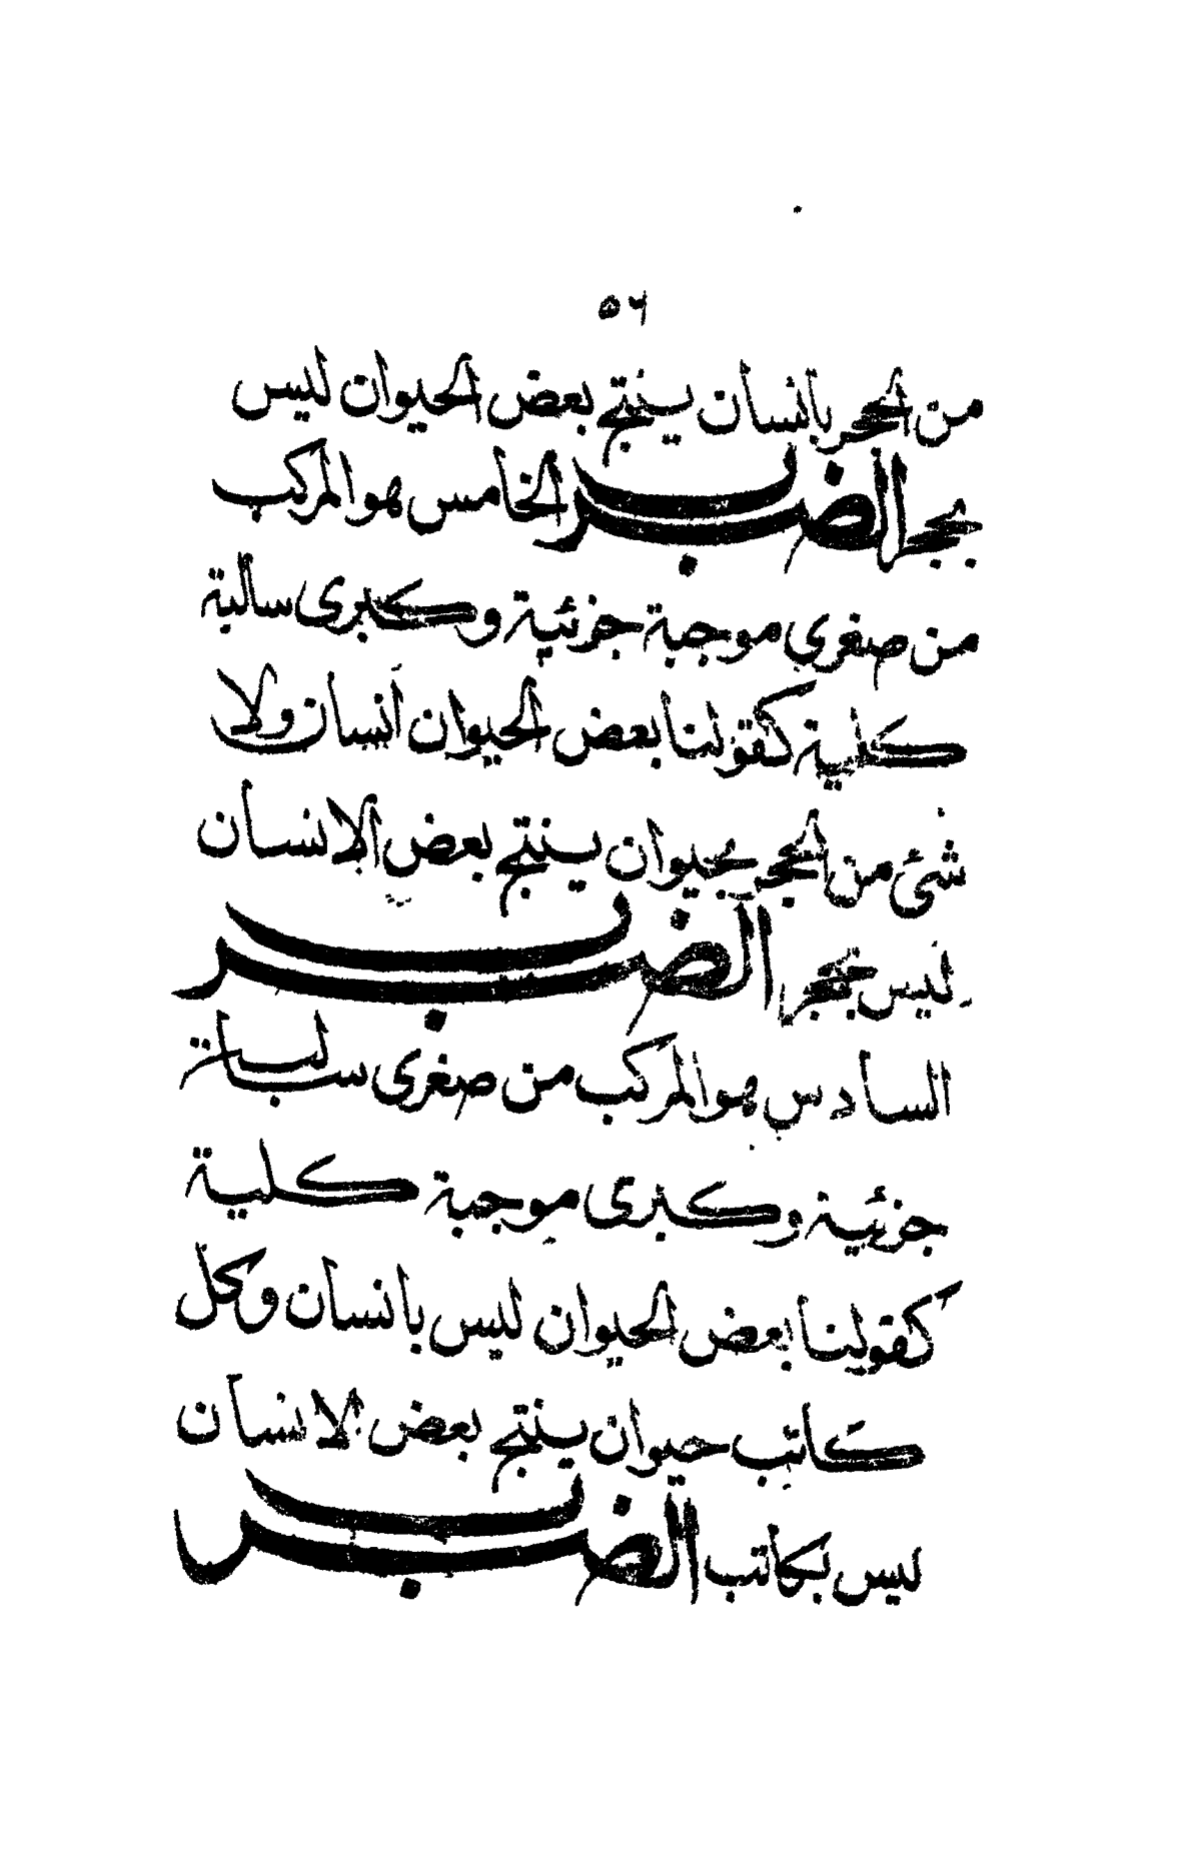 ٥٦
من الحجر بانسان ينتج بعض الحيوان ليس
بحجر الضرب الخامس هو المركب
من صغرى موجبة جزئية وكبرى سالبة
كلية كقولنا بعض الحيوان انسان ولا
شئ من الحجر بحيوان ينتج بعض الانسان
ليس بحجر الضرب
السادس هو المركب من صغرى سالبة
جزئية وكبرى موجبة كلية
كقولنا بعض الحيوان ليس بانسان وكل
كاتب حيوان ينتج بعض الانسان
ليس بكاتب الضرب